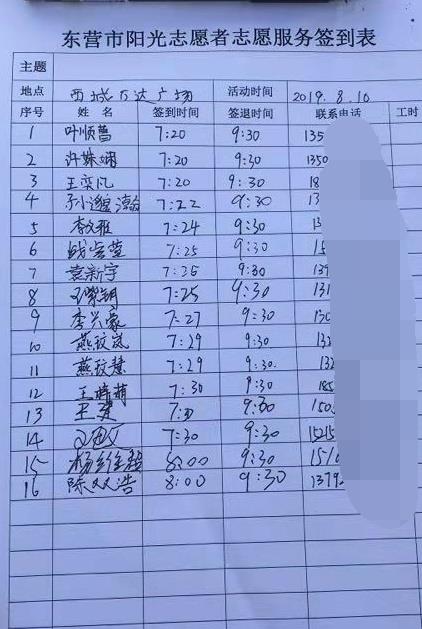 东营市阳光志愿者志愿服务签到表
主题
地点 西城万达广场 活动时间 2019.8.10
序号 姓名 签到时间 签退时间 联系电话 工时
1 叶顺曹 7:20 9:30 135
2 许姝娴 7:20 9:30 1350
3 王奕凡 7:20 9:30 18
4 7:22 9:30 13
5 李文雅 7:24 9:30 13
6 7:25 9:30 15
7 袁新宇 7:25 9:30 139
8 7:25 9:30 131
9 李兴豪 7:27 9:30 130
10 燕玟岚 7:29 9:30 132
11 燕玟慧 7:29 9:30 132
12 王萌萌 7:30 9:30 185
13 9:30 150
14 7:30 9:30 15215
15 杨 8:00 9:30 151
16 陈双浩 8:00 9:30 1379